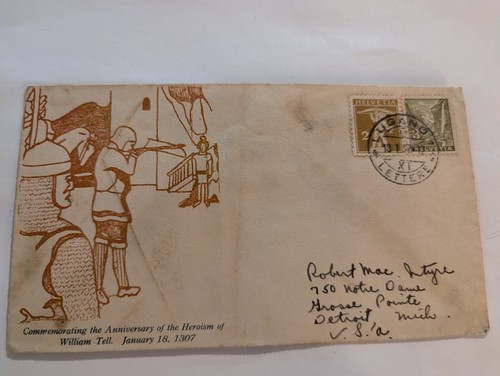 HELVETIA
2
HELVETIA
LUGANO 1
XI
LETTERE
Robert Mac. Intyre
750 Notre Dame
Grosse Pointe
Detroit Mich.
U.S.a.
Commemorating the Anniversary of the Heroism of
William Tell. January 18, 1307